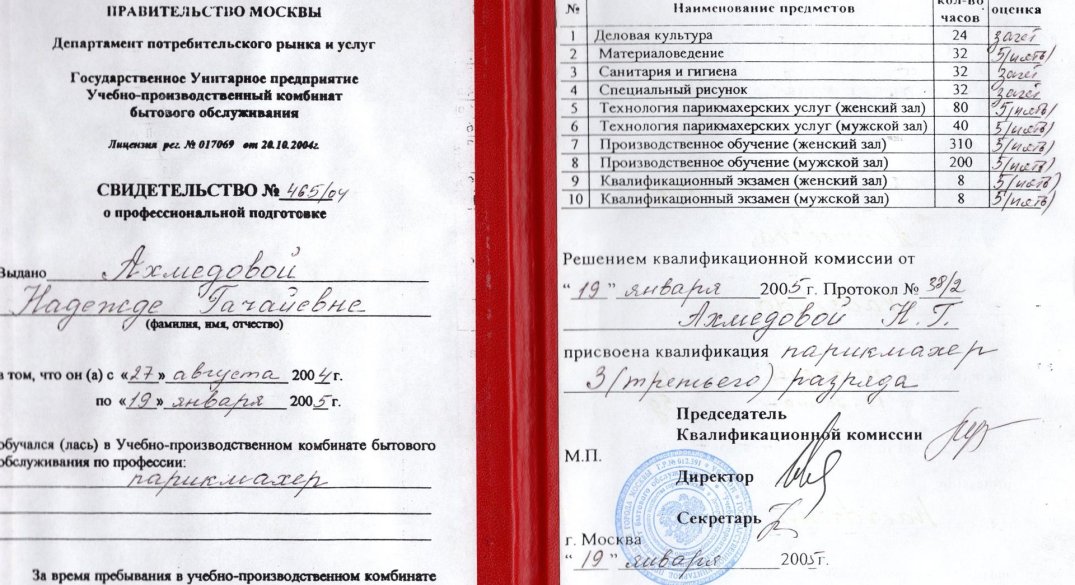 ПРАВИТЕЛЬСТВО МОСКВЫ
Департамент потребительского рынка и услуг
Государственное Унитарное предприятие
Учебно-производственный комбинат
бытового обслуживания
Лицензия рег. № 017069 от 20.10.2004г.
СВИДЕТЕЛЬСТВО № 465/04
о профессиональной подготовке
Выдано Ахмедовой
Надежде Гачайевне
(фамилия, имя, отчество)
в том, что он (а) с «27» августа 2004 г.
по «19» января 2005 г.
обучался (лась) в Учебно-производственном комбинате бытового
обслуживания по профессии:
парикмахер
За время пребывания в учебно-производственном комбинате
№ Наименование предметов кол-во часов оценка
1 Деловая культура 24 зачет
2 Материаловедение 32 5/пять/
3 Санитария и гигиена 32 зачет
4 Специальный рисунок 32 зачет
5 Технология парикмахерских услуг (женский зал) 80 5/пять/
6 Технология парикмахерских услуг (мужской зал) 40 5/пять/
7 Производственное обучение (женский зал) 310 5/пять/
8 Производственное обучение (мужской зал) 200 5/пять/
9 Квалификационный экзамен (женский зал) 8 5/пять/
10 Квалификационный экзамен (мужской зал) 8 5/пять/
Решением квалификационной комиссии от
“ 19 ” января 2005 г. Протокол № 38/2
Ахмедовой Н. Г.
присвоена квалификация парикмахер
3 (третьего) разряда
Председатель
Квалификационной комиссии
М.П.
Директор
Секретарь
г. Москва
“ 19 ” января 2005г.